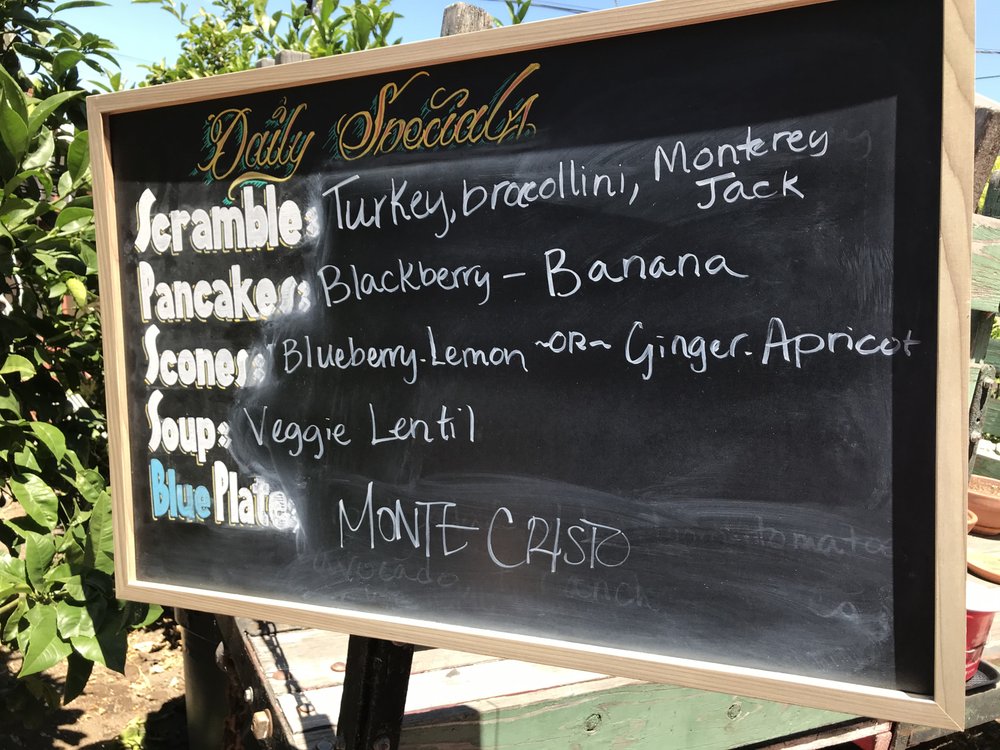 Daily Specials
Scramble: Turkey, brocollini, Monterey Jack
Pancakes: Blackberry - Banana
Scones: Blueberry.Lemon ~OR~ Ginger.Apricot
Soup: Veggie Lentil
Blue Plate: MONTE CRISTO
tomato
Avocado